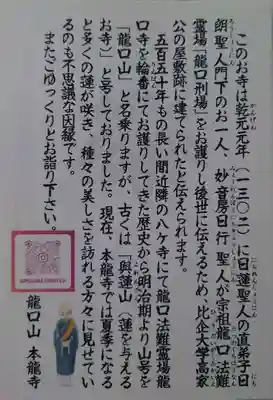 このお寺は乾元元年(一三〇二)に日蓮聖人の直弟子日
朗聖人門下のお一人、妙音房日行聖人が宗祖龍口法難
霊場「龍口刑場」をお護りし後世に伝えるため、比企大学高家
公の屋敷跡に建てられたと伝えられます。
五百五十年もの長い間近隣の八ケ寺にて龍口法難霊場龍
口寺を輪番にてお護りしてきた歴史から明治期より山号を
「龍口山」と名乗りますが、古くは「與蓮山(蓮を与える
お寺)」と号しておりました。現在、本龍寺では夏季になる
と多くの蓮が咲き、種々の美しさを訪れる方々に見せてい
るのも不思議な因縁です。
またごゆっくりとお詣り下さい。
龍口山 本龍寺